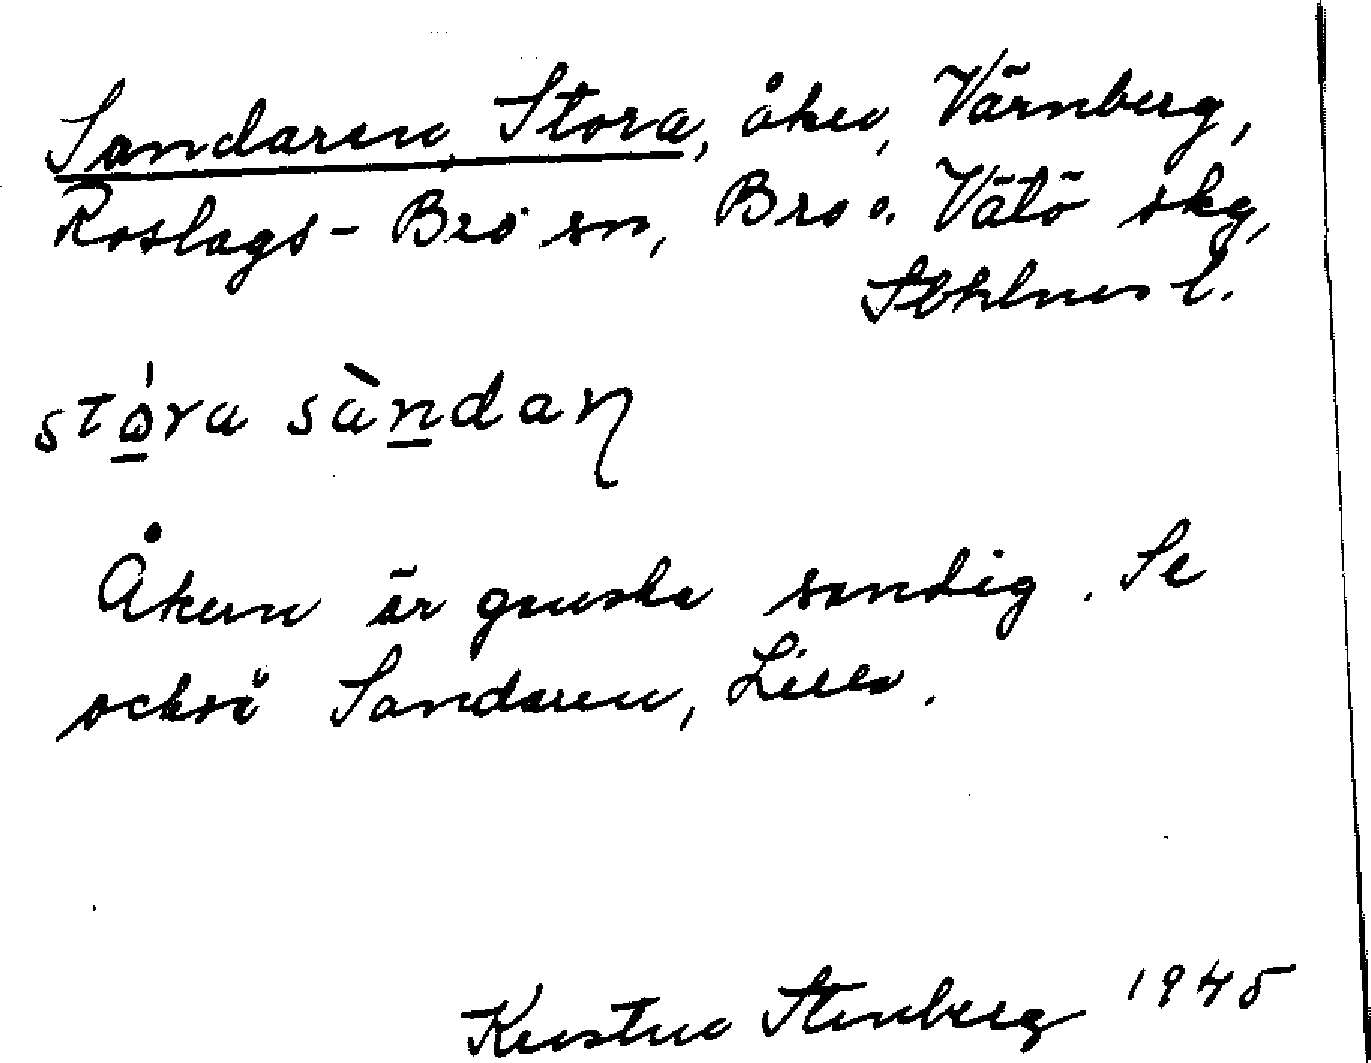 Sandaren, Stora, åker, Värnberg,
Roslags-Bro sn, Bro o. Vätö skg,
Sthlms l.
stóra sàndaɳ
Åkern är ganska sandig. Se
också Sandaren, Lilla.
Kerstin Stenberg 1945